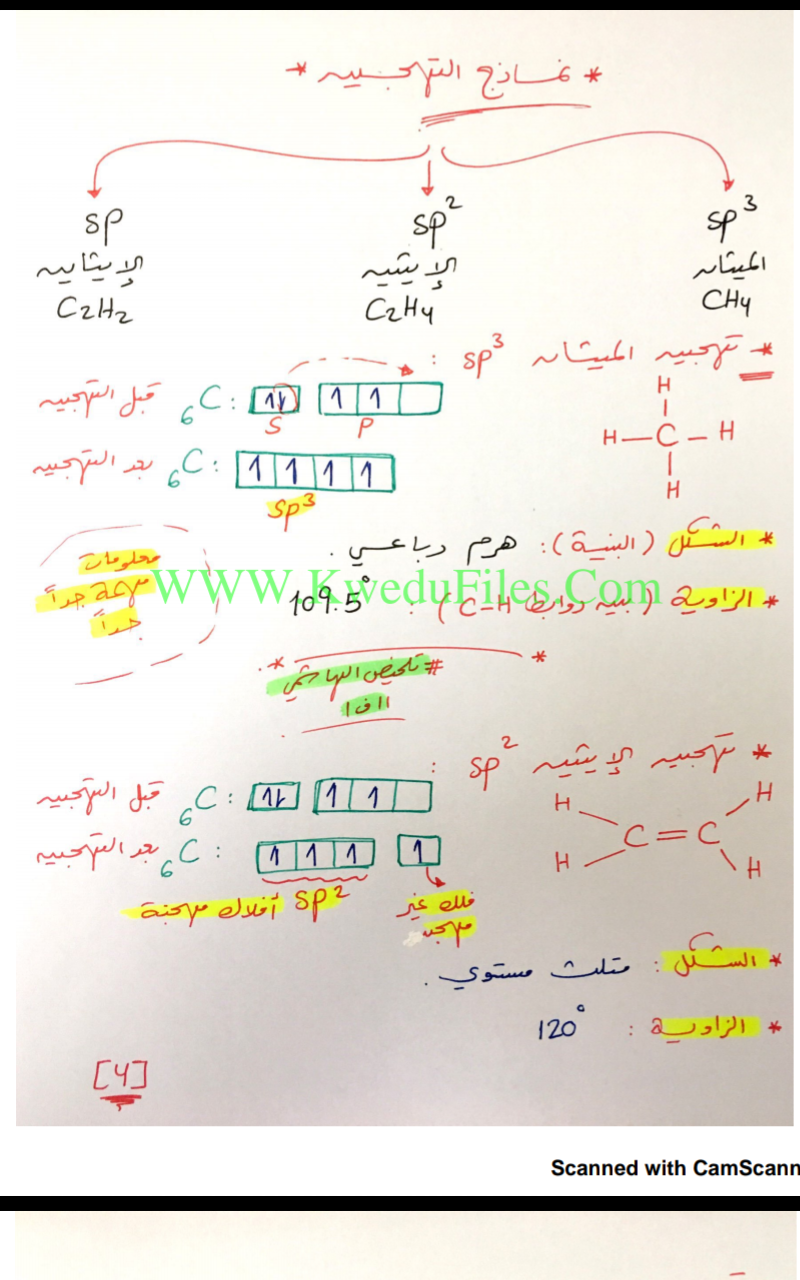 * نماذج التهجين *
sp³ sp² sp
الميثان الإيثين الإيثاين
CH4 C2H4 C2H2
* تهجين الميثان sp³ :
قبل التهجين 6C : 1L 1 1
S P
بعد التهجين 6C : 1 1 1 1
sp³
H
H—C—H
H
* الشكل (البنية) : هرم رباعي .
* الزاوية (بين روابط C-H) : 109.5°
معلومات
مهمة جداً
جداً
WWW.KweduFiles.Com
* *
# تلخيص الهاشمي
١١ف١
* تهجين الإيثين sp² :
قبل التهجين 6C : 1L 1 1
بعد التهجين 6C : 1 1 1 1
sp² أفلاك مهجنة
فلك غير
مهجن
H H
C=C
H H
* الشكل : مثلث مستوي .
* الزاوية : 120°
[4]
Scanned with CamScann